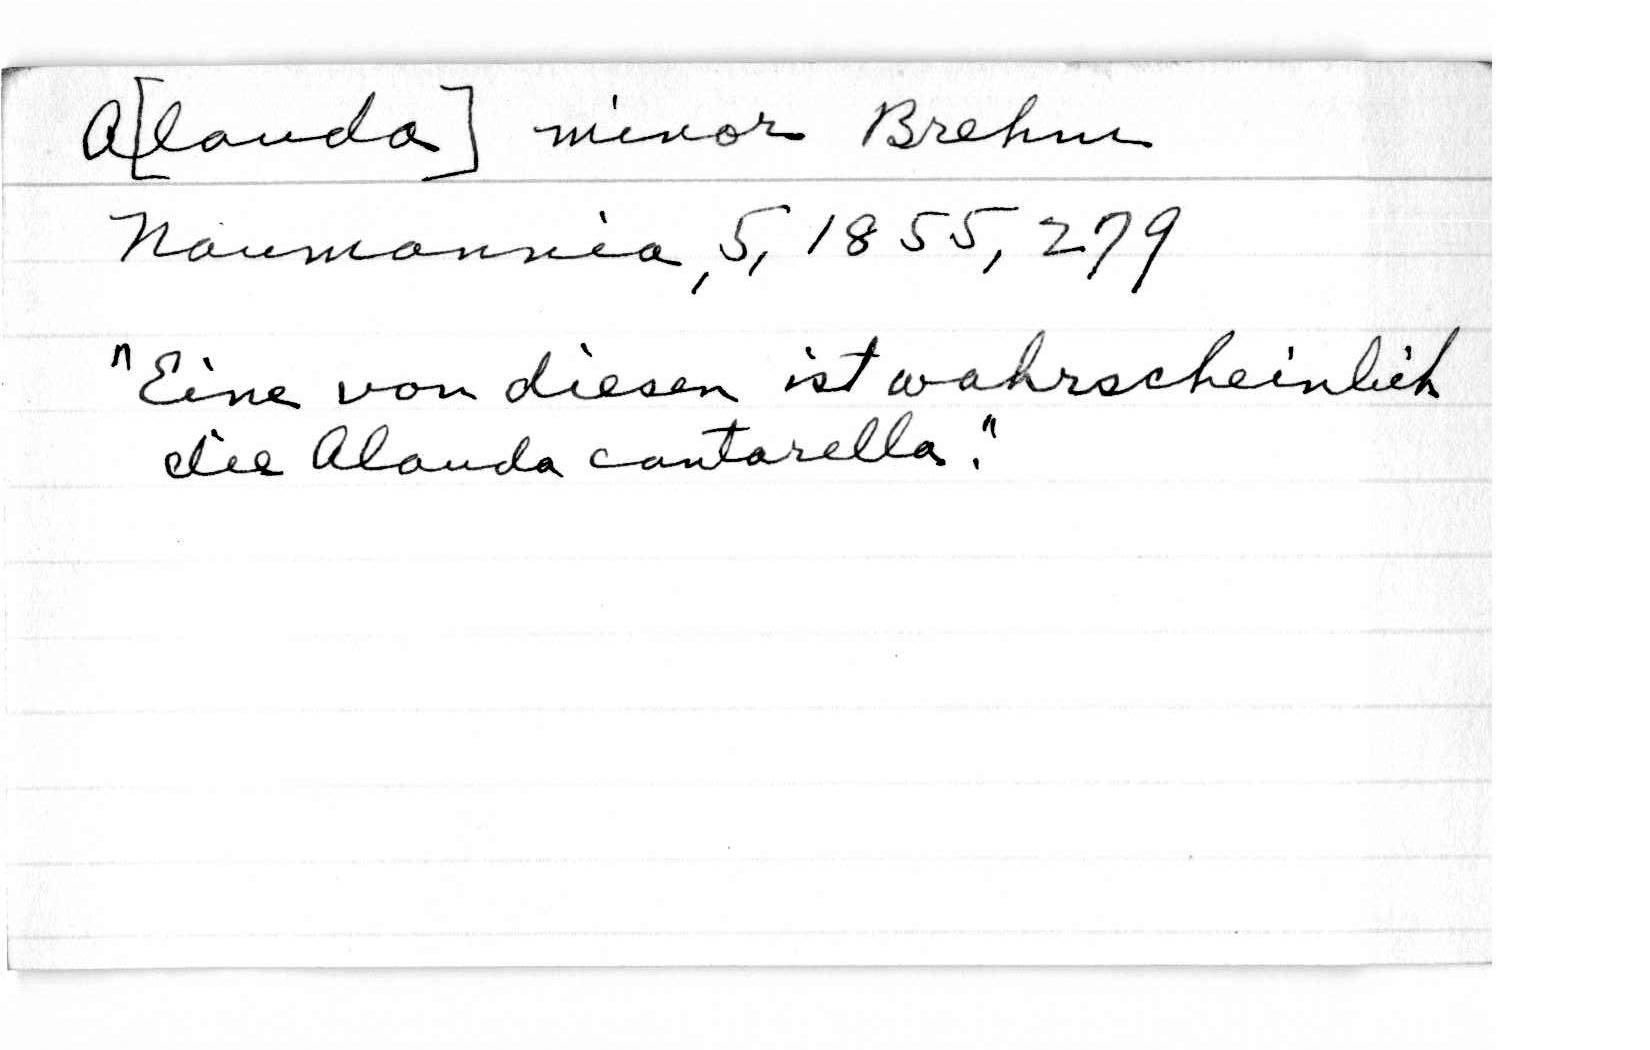 A[lauda] minor Brehm
Naumannia, 5, 1855, 279
"Eine von diesen ist wahrscheinlich
die Alauda cantarella."